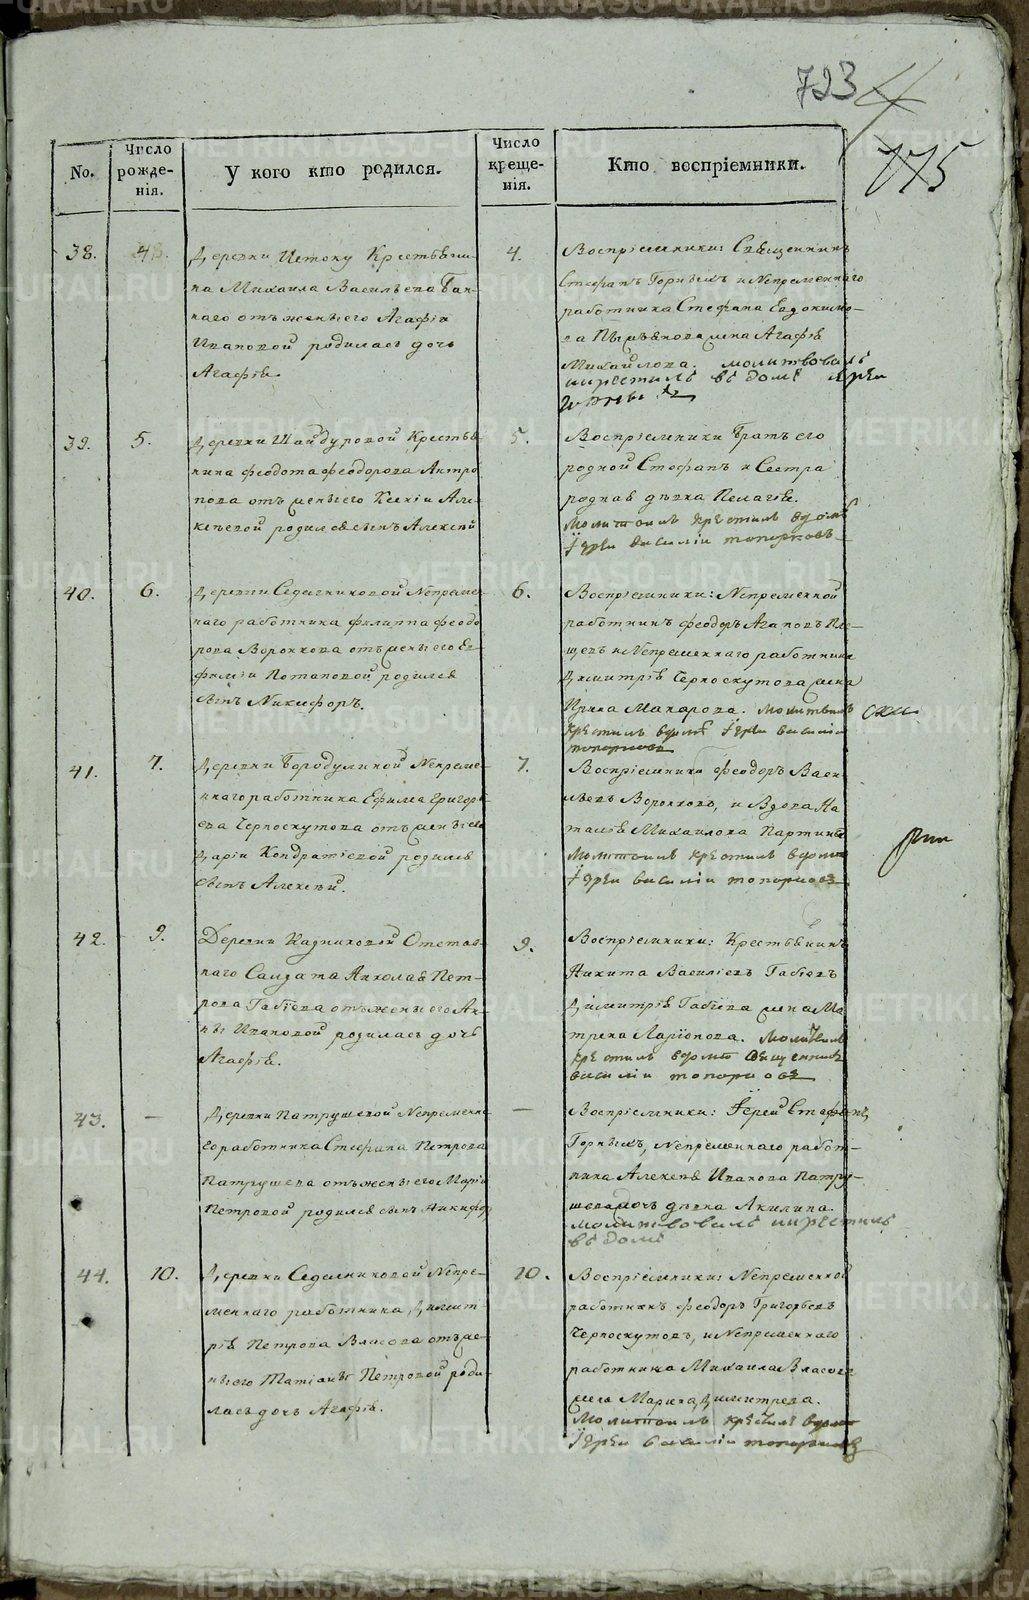 723
775
No.
Число рожде-нія.
У кого кто родился.
Число креще-нія.
Кто воспріемники.
38.
4
Деревни Истоку Крестьяни-
на Михаила Васильева
наго отъ жены его Агафіи
Ивановой родилась дочь
Агафія.
4.
Воспріемники: Священникъ
Стефанъ Горныхъ и Непременнаго
работника Стефана Евдокимо-
ва жена Агафія
Михайлова. молитвовалъ
и крестилъ въ домѣ Іерей
39.
5.
Деревни Шайдуровой Крестья-
нина Феодота Феодорова Антро
пова отъ жены его Ксеніи Але-
ксѣевой родился сынъ Алексѣй
5.
Воспріемники братъ его
родной Стефанъ и Сестра
родная дѣвка Пелагія.
Молитвилъ крестилъ вдомѣ
Іереи василіи топорковъ
40.
6.
Деревни Седельниковой Непремен-
наго работника Филиппа Феодо
рова Воронкова отъ жены его Ев
фиміи Потаповой родился
сынъ Никифоръ.
6.
Воспріемники: Непременной
работникъ Феодоръ Агаповъ Пле-
щевъ и Непременнаго работника
Димитрія Черноскутова жена
Ирина Макарова. Молитвилъ
крестилъ вдомѣ Іереи василіи
топорковъ
41.
7.
Деревни Бородулиной Непреме-
ннаго работника Ефима Григорь
ева Черноскутова отъ жены его
Даріи Кондратіевой родился
сынъ Алексѣй.
7.
Воспріемники Феодоръ Васи-
льевъ Воронковъ, и Вдова На
талія Михайлова Партина
Молитвилъ крестилъ вдомѣ
Іереи василіи топорковъ
42.
9.
Деревни Кадниковой Отстав-
наго Салдата Николая Пет-
рова Габіева отъ жены его Ан-
ны Ивановой родилась дочь
Агафія.
9.
Воспріемники: Крестьянинъ
Никита Василіевъ Габіевъ
Димитрія Габіева жена Ма
трена Ларіонова. Молитвилъ
крестилъ вдомѣ священникъ
василіи топорковъ
43.
—
Деревни Патрушевой Непременна-
го работника Стефана Петрова
Патрушева отъ жены его Маріи
Петровой родился сынъ Никифор
—
Воспріемники: Іерей Стефанъ
Горныхъ, Непременнаго работ-
ника Алексѣя Иванова Патру-
шева дочь дѣвка Акилина.
молитвовалъ и крестилъ
въ домѣ
44.
10.
Деревни Седельниковой Непре-
меннаго работника Димит
рія Петрова Власова отъ же-
ны его Татіаны Петровой роди-
лась дочь Агафія.
10.
Воспріемники: Непременной
работникъ Феодоръ Григорьевъ
Черноскутовъ, и Непременнаго
работника Михаила Власова
жена Марина Димитрева.
Молитвилъ крестилъ вдомѣ
Іереи василіи топорковъ
METRIKI.GASO-URAL.RU